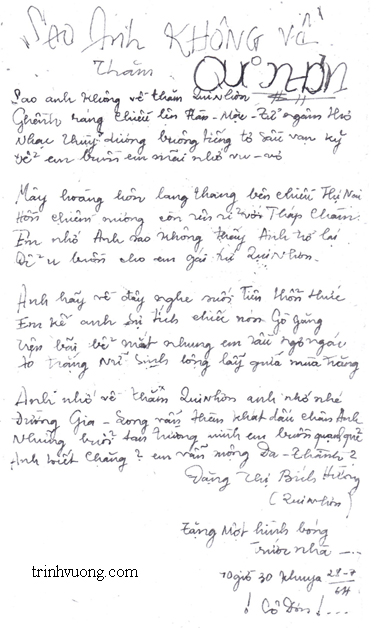 SAO Anh KHÔNG Về
Thăm QuiNhơn
Sao anh không về thăm QuiNhơn
Ghềnh ráng chiều lên Hàn-Mặc-Tử ngâm thơ
Nhạc thùy dương buông tiếng tơ sầu vạn kỷ
Để em buồn em mãi nhớ vu-vơ
Mây hoàng hôn lang thang bên chiều Thị Nại
Hồn chiêm nương còn rên rỉ với Tháp Chàm
Em nhớ Anh sao không thấy Anh trở lại
Để u buồn cho em gái xứ QuiNhơn.
Anh hãy về đây nghe suối Tiên thổn thức
Em kể anh sự tích chiếc non Gò Găng
trên bãi bể mắt nhung em sầu ngơ ngác
áo trắng Nữ Sinh lộng lẫy quá mùa trăng
Anh nhớ về thăm QuiNhơn anh nhớ nhé
Đường Gia-Long vẫn thèm khát dấu chân Anh
Những buổi tan trường mình em buồn quạnh quẽ
Anh biết chăng? em vẫn mộng Đa-Thành 2
Đặng Thị Bích Hường
(QuiNhơn)
Tặng Một hình bóng
trước nhà ....
10 giờ 30 khuya 28-7
64
! Cô Đơn ! ...
trinhvuong.com